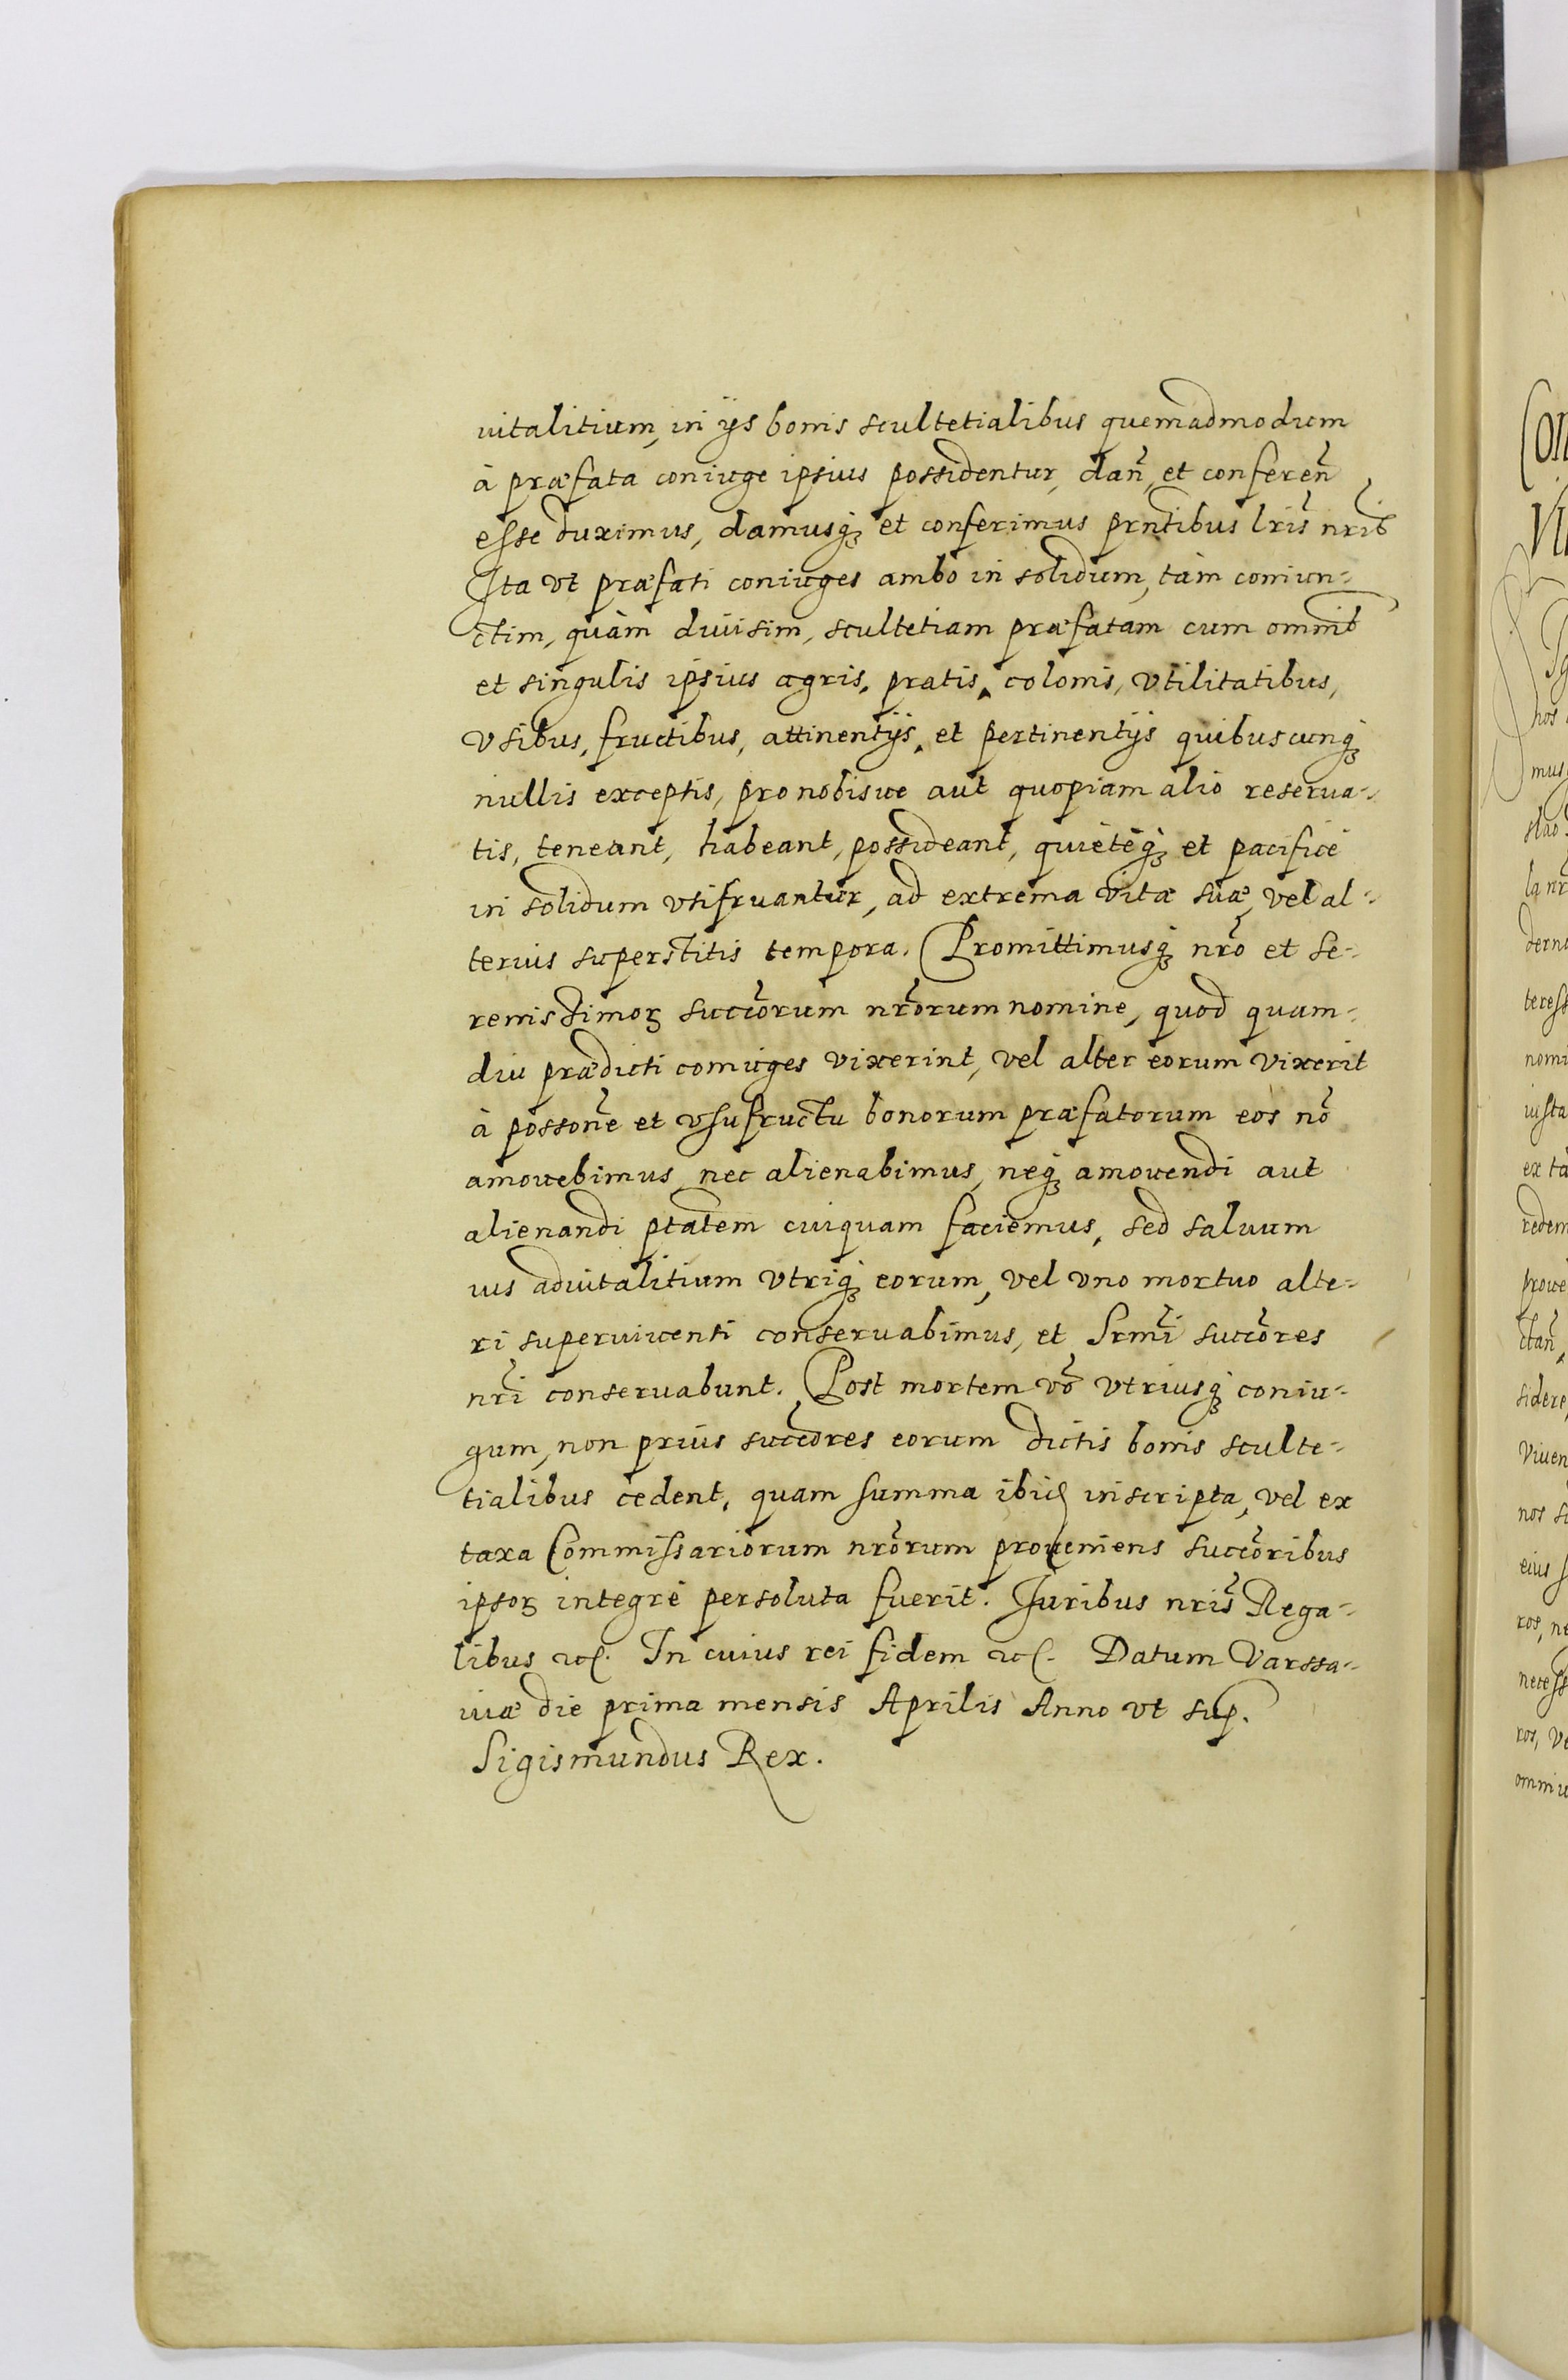 uitalitium, in ijs bonis scultetialibus quemadmodum
à præfata coniuge ipsius possidentur, dañ, et conferen̄
esse duximus, damusq́ꝫ et conferimus prñtibus lris̃ nrib̃
Ita vt præfati coniuges ambo in solidum, tàm coniun-
ctim, quàm diuisim, scultetiam præfatam cum omnib
et singulis ipsius agris, pratis, colonis, vtilitatibus,
vsibus, fructibus, attinentijs, et pertinentijs quibuscunqꝫ
nullis exceptis, pro nobisue aut quopiam alio reserua-
tis, teneant, habeant, possideant, quietèqꝫ et pacificè
in solidum vtifruantur, ad extrema vitæ suæ, vel al-
terius superstitis tempora. Promittimusqꝫ nrõ et Se-
renissimoꝝ succõrum nrõrum nomine, quod quam-
diu prædicti coniuges vixerint, vel alter eorum vixerit
à possone͂ et vsufructu bonorum præfatorum eos nõ
amouebimus, nec alienabimus, neqꝫ amouendi aut
alienandi ptãtem cuiquam faciemus, sed saluum
ius aduitalitium vtriqꝫ eorum, vel vno mortuo alte-
ri superuiuenti conseruabimus, et Srmĩ succõres
nrĩ conseruabunt. Post mortem võ vtriusqꝫ coniu-
gum, non prius succõres eorum dictis bonis sculte-
tialibus cedent, quam summa ibid inscripta, vel ex
taxa Commissariorum nrõrum proueniens succõribus
ipsoꝝ integrè persoluta fuerit. Juribus nris̃ Rega-
libus etc. In cuius rei fidem etc. Datum Varssa-
uiæ die prima mensis Aprilis Anno vt sup.
Sigismundus Rex.